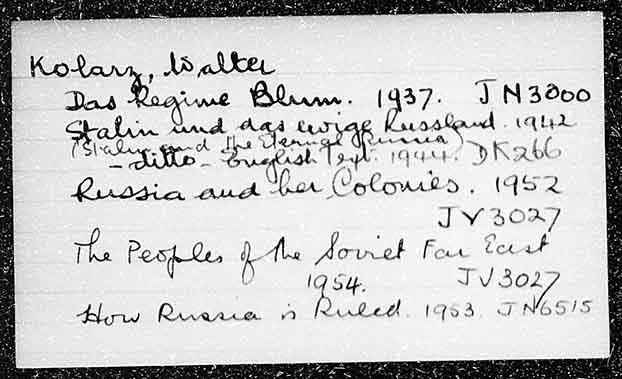 Kolarz, Walter
Das Regime Blum. 1937. JN3000
Stalin und das ewige Russland. 1942
(Stalin and the Eternal Russia)
- ditto - English Text. 1944. DK266
Russia and her Colonies. 1952
JV3027
The Peoples of the Soviet Far East
1954. JV3027
How Russia is Ruled. 1953. JN6515